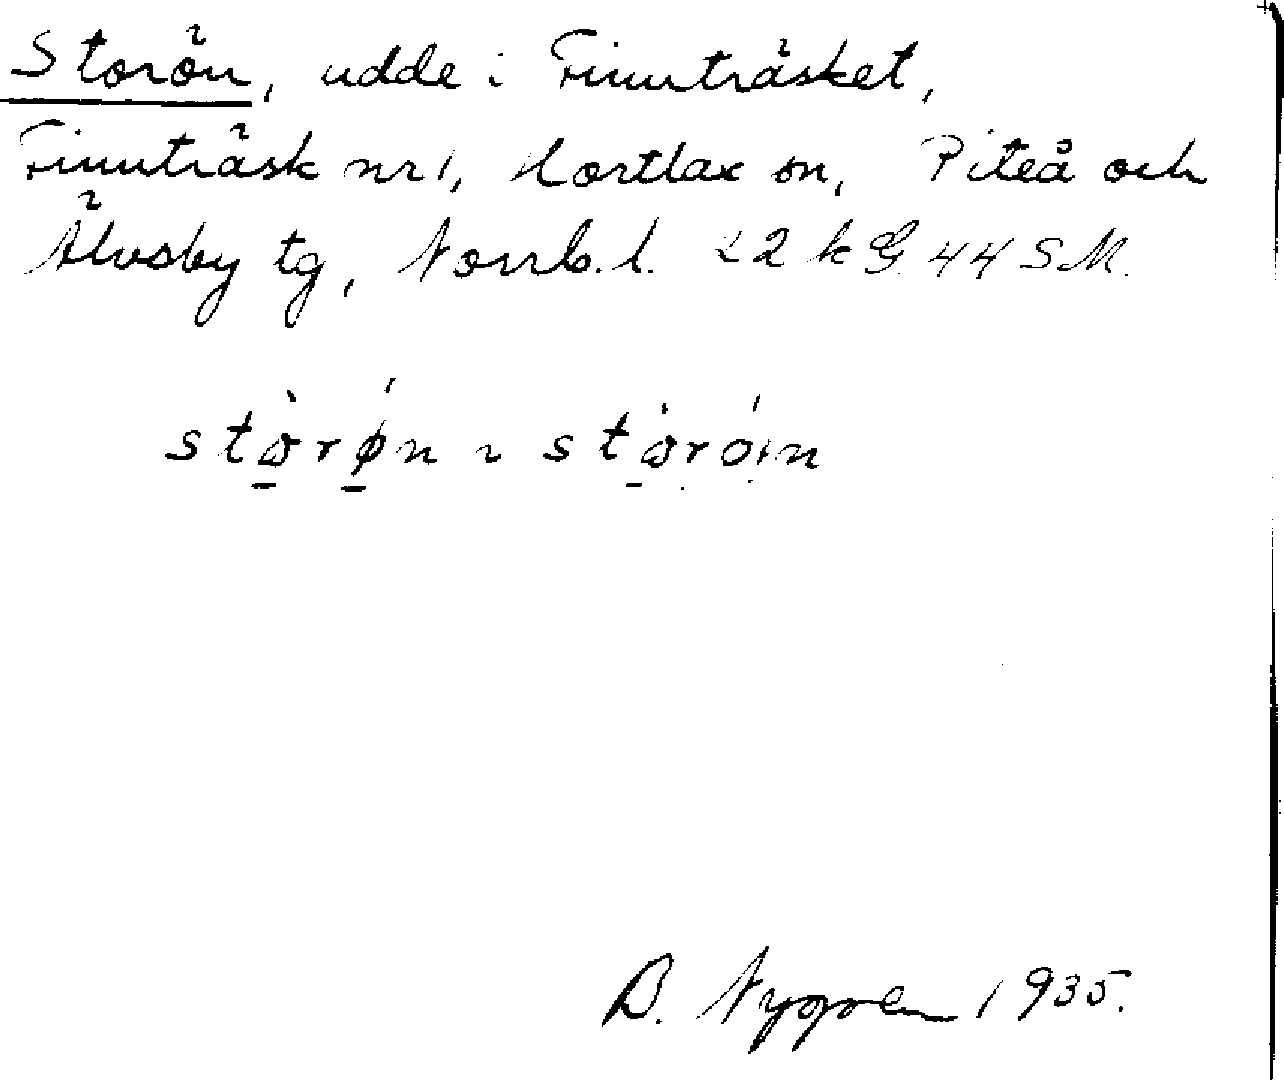 Storön, udde i Finnträsket,
Finnträsk nr 1, Hortlax sn, Piteå och
Älvsby tg, Norrb. l. 22 k G 44 SM.
størøn ~ störóin
B. Nygren 1935.